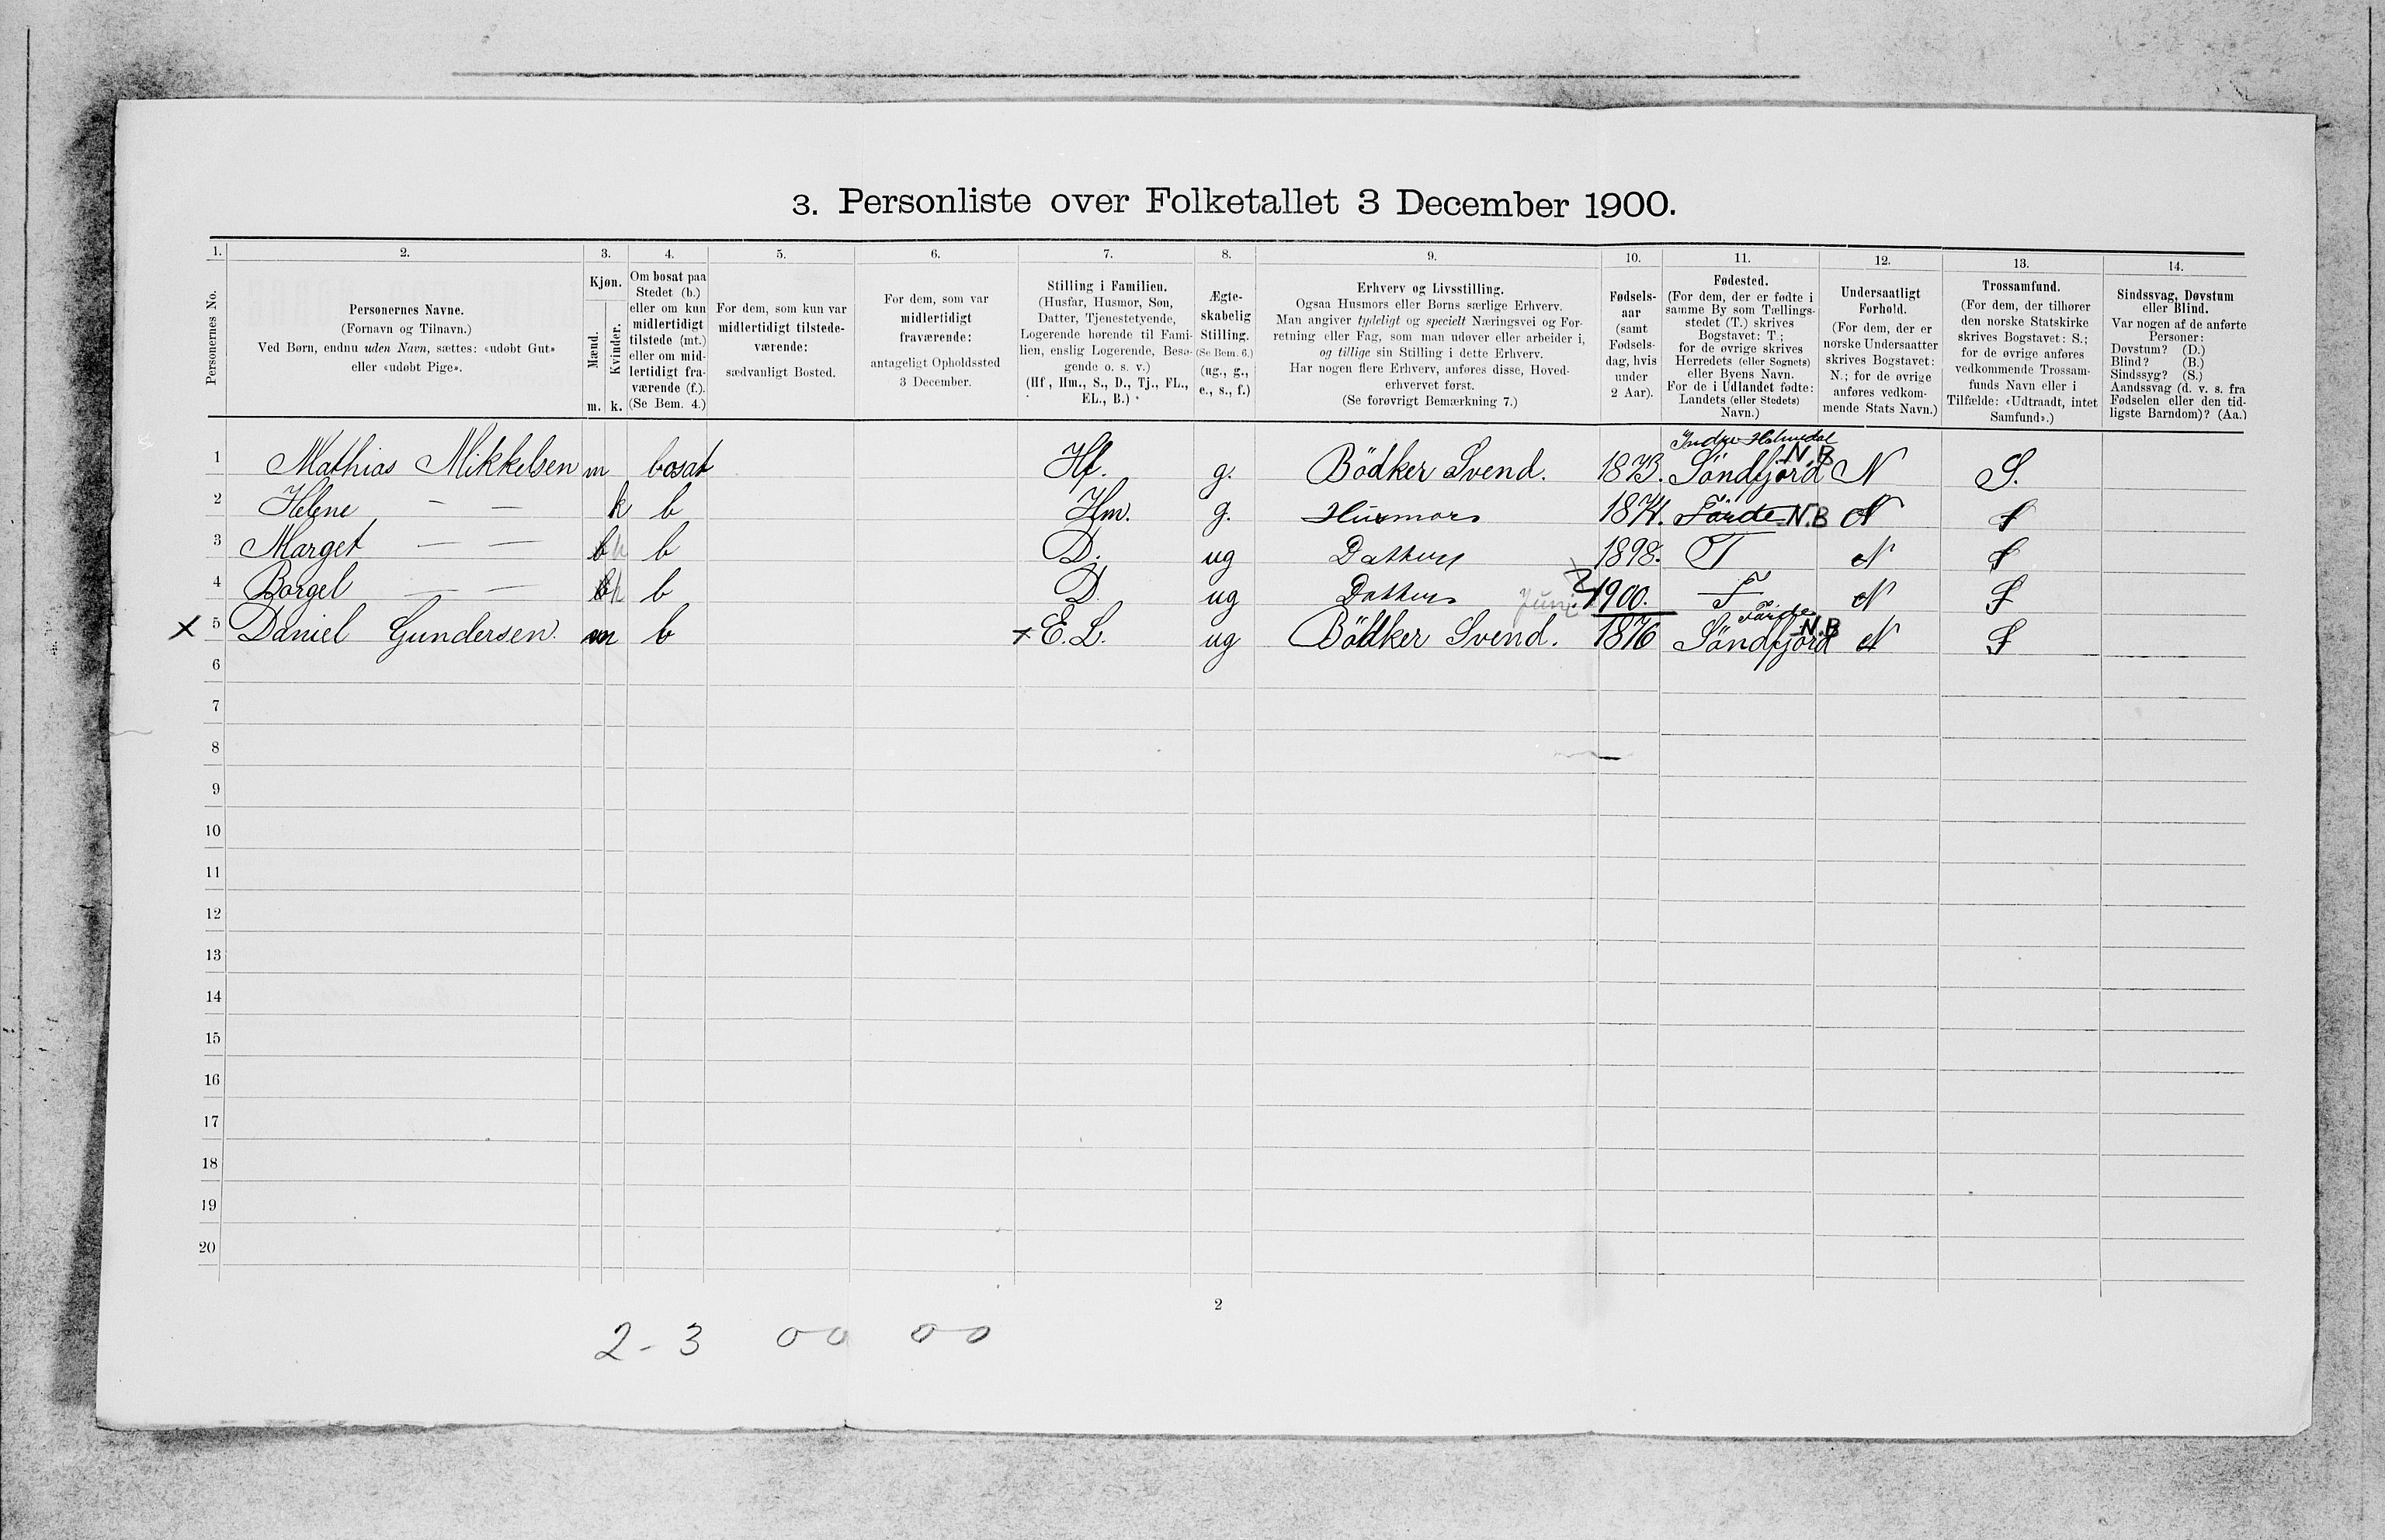 3. Personliste over Folketallet 3 December 1900.
1. 2. 3. 4. 5. 6. 7. 8. 9. 10. 11. 12. 13. 14.
Personernes No.
Personernes Navne.
(Fornavn og Tilnavn.)
Ved Børn, endnu uden Navn, sættes: «udøbt Gut»
eller «udøbt Pige».
Kjøn.
Mænd.
Kvinder.
m. k.
Om bosat paa
Stedet (b.)
eller om kun
midlertidigt
tilstede (mt.)
eller om mid-
lertidigt fra-
værende (f.).
(Se Bem. 4.)
For dem, som kun var
midlertidigt tilstede-
værende:
sædvanligt Bosted.
For dem, som var
midlertidigt
fraværende:
antageligt Opholdssted
3 December.
Stilling i Familien.
(Husfar, Husmor, Søn,
Datter, Tjenestetyende,
Logerende hørende til Fami-
lien, enslig Logerende, Besø-
gende o. s. v.)
(Hf., Hm., S., D., Tj., FL.,
EL., B.)
Ægte-
skabelig
Stilling.
(Se Bem. 6.)
(ug., g.,
e., s., f.)
Erhverv og Livsstilling.
Ogsaa Husmors eller Børns særlige Erhverv.
Man angiver tydeligt og specielt Næringsvei og For-
retning eller Fag, som man udøver eller arbeider i,
og tillige sin Stilling i dette Erhverv.
Har nogen flere Erhverv, anføres disse, Hoved-
erhvervet først.
(Se forøvrigt Bemærkning 7.)
Fødsels-
aar
(samt
Fødsels-
dag, hvis
under
2 Aar).
Fødested.
(For dem, der er fødte i
samme By som Tællings-
stedet (T.) skrives
Bogstavet: T.;
for de øvrige skrives
Herredets (eller Sognets)
eller Byens Navn.
For de i Udlandet fødte:
Landets (eller Stedets)
Navn.)
Undersaatligt
Forhold.
(For dem, der er
norske Undersaatter
skrives Bogstavet:
N.; for de øvrige
anføres vedkom-
mende Stats Navn.)
Trossamfund.
(For dem, der tilhører
den norske Statskirke
skrives Bogstavet: S.;
for de øvrige anføres
vedkommende Trossam-
funds Navn eller i
Tilfælde: «Udtraadt, intet
Samfund».)
Sindssvag, Døvstum
eller Blind.
Var nogen af de anførte
Personer:
Døvstum? (D.)
Blind? (B.)
Sindssyg? (S.)
Aandssvag (d. v. s. fra
Fødselen eller den tid-
ligste Barndom)? (Aa.)
Indre Holmedal
1 Mathias Mikkelsen m bosat Hf. g. Bödker Svend. 1873. Söndfjord N.B N S.
2 Helene — — k b Hm. g. Husmor 1874. Förde N.B N S
3 Marget — — k b D. ug Datter 1898. T N S
4 Borgel — — k b D. ug Datter Juni 1900. T N S
Förde
x 5 Daniel Gundersen. m b x E. L. ug Bödker Svend. 1876 Söndfjord N.B N S
6
7
8
9
10
11
12
13
14
15
16
17
18
19
20
2
2 - 3 00 00